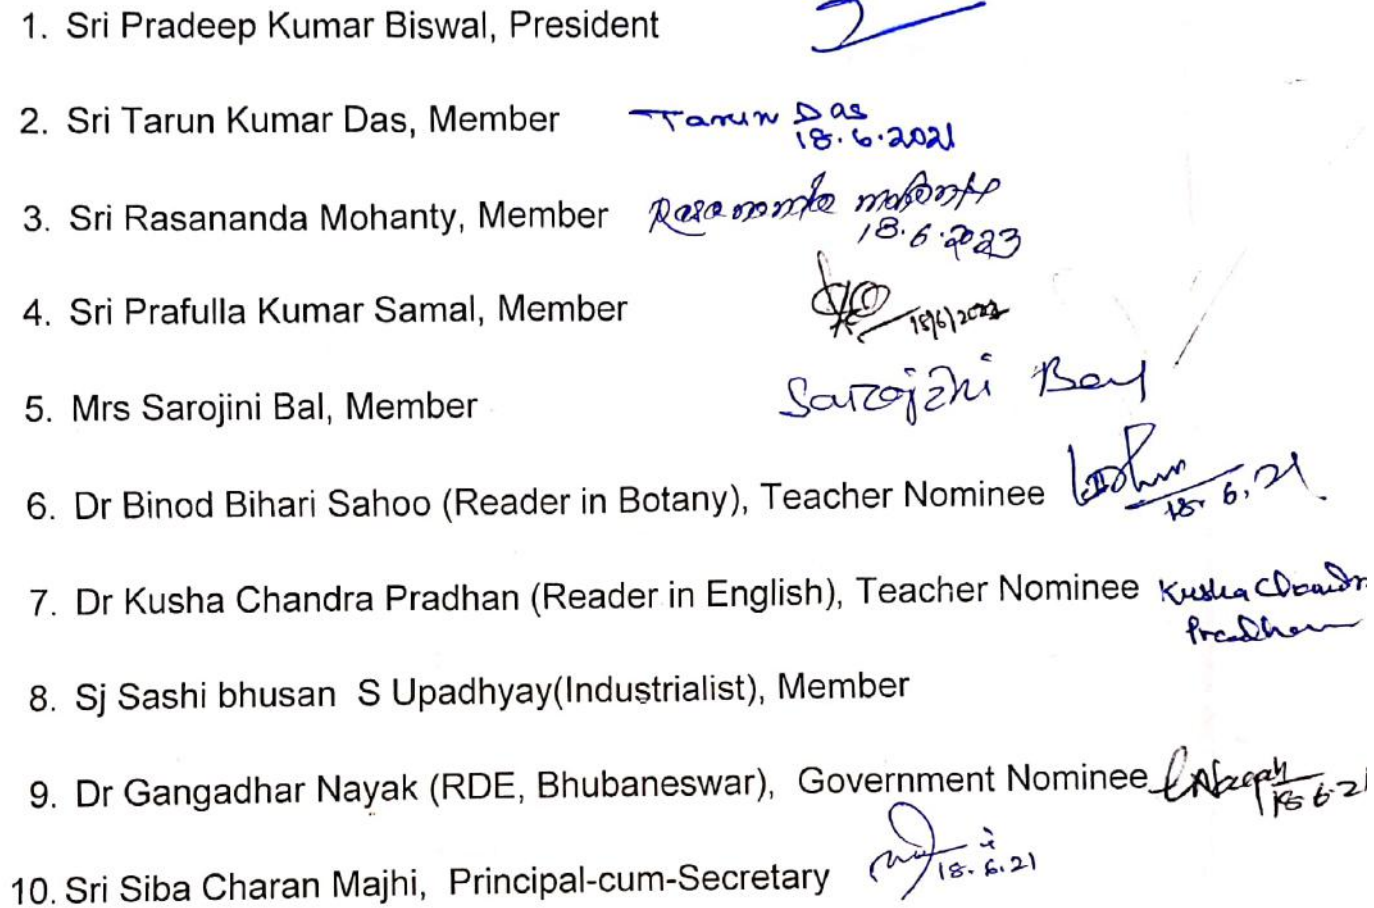 1. Sri Pradeep Kumar Biswal, President
2. Sri Tarun Kumar Das, Member Tarun Das
18.6.2021
3. Sri Rasananda Mohanty, Member Rasananda Mohanty
18.6.2023
4. Sri Prafulla Kumar Samal, Member
5. Mrs Sarojini Bal, Member Sarojini
6. Dr Binod Bihari Sahoo (Reader in Botany), Teacher Nominee
18.6.21
7. Dr Kusha Chandra Pradhan (Reader in English), Teacher Nominee Kusha Chandr
Pradhan
8. Sj Sashi bhusan S Upadhyay(Industrialist), Member
9. Dr Gangadhar Nayak (RDE, Bhubaneswar), Government Nominee
18.6.21
10. Sri Siba Charan Majhi, Principal-cum-Secretary
18.6.21